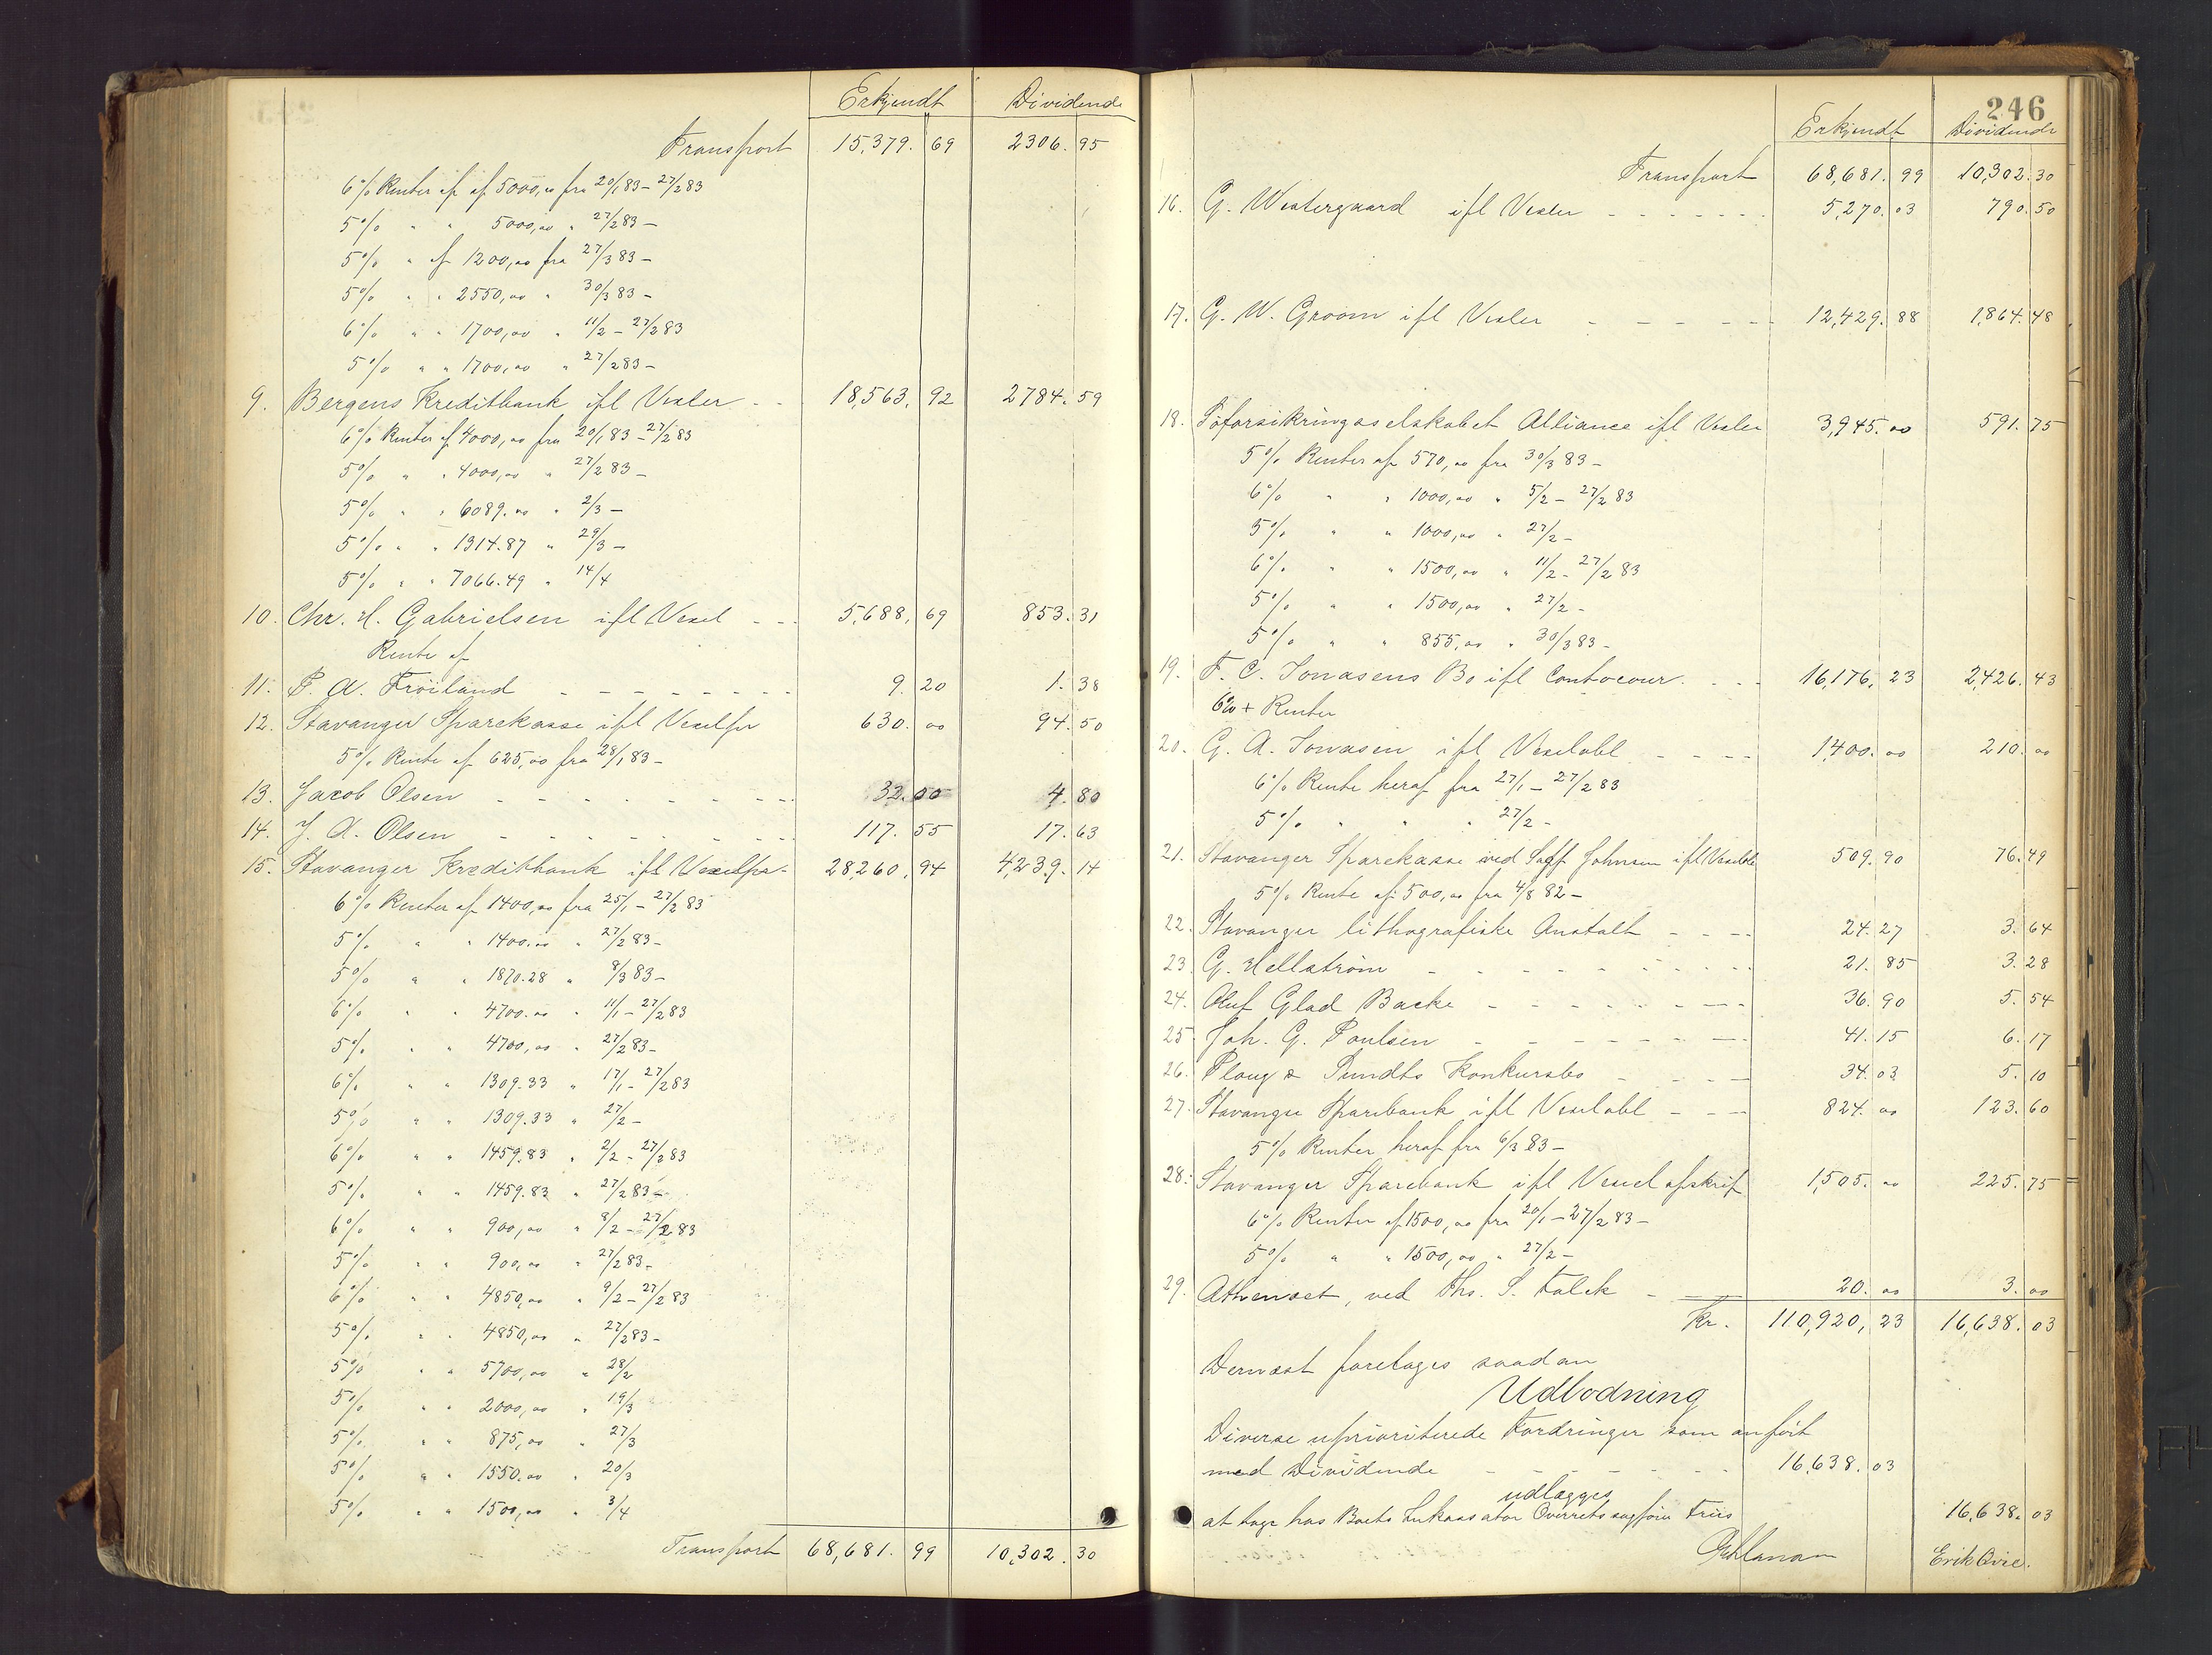 Erkjendt Dividende
Transport 15,379. 69 2306. 95
6% Renter af af 5000,00 fra 20/1 83 - 27/2 83
5% " " 5000,00 " 27/2 83 -
5% " af 1200,00 fra 27/3 83 -
5% " " 2550,00 " 30/3 83 -
6% " " 1700,00 " 11/2 - 27/2 83
5% " " 1700,00 " 27/2 83 -
9. Bergens Kreditbank ifl Vexler - - 18,563. 92 2784. 59
6% Renter af 4000,00 fra 20/1 83 - 27/2 83
5% " " 4000,00 " 27/2 83 -
5% " " 6089.00 " 2/3 -
5% " " 1314.87 " 29/3 -
5% " " 7066.49 " 14/4
10. Chr. H. Gabrielsen ifl Vexel - - - 5,688. 69 853. 31
Rente af
11. P. A. Fröiland - - - - - - - - 9. 20 1. 38
12. Stavanger Sparekasse ifl 630. 00 94. 50
5% Rente af 625,00 fra 28/1 83 -
13. Jacob Olsen - - - - - - - - - 32. 00 4. 80
14. J. A. Olsen - - - - - - - - - 117. 55 17. 63
15. Stavanger Kreditbank ifl 28,260. 94 4,239. 14
6% Renter af 1400,00 fra 25/1 - 27/2 83
5% " " 1400.00 " 27/2 83 -
5% " " 1870.28 " 8/3 83 -
6% " " 4700.00 " 11/1 - 27/2 83
5% " " 4700,00 " 27/2 83 -
6% " " 1309.33 " 17/1 - 27/2 83
5% " " 1309.33 " 27/2 -
6% " " 1459.83 " 2/2 - 27/2 83
5% " " 1459.83 " 27/2 83 -
6% " " 900,00 " 8/2 - 27/2 83
5% " " 900,00 " 27/2 83 -
6% " " 4850,00 " 9/2 - 27/2 83
5% " " 4850,00 " 27/2 83 -
5% " " 5700,00 " 28/2
5% " " 2000,00 " 19/3
5% " " 875,00 " 27/3
5% " " 1550.00 " 20/3
5% " " 1500,00 " 3/4
Transport 68,681. 99 10,302. 30
246
Erkjendt Dividende
Transport 68,681. 99 10,302. 30
16. G. Westergaard ifl Vexler - - - - - - - 5,270. 03 790. 50
17. G. W. Groom ifl Vexler - - - - - - 12,429. 88 1,864. 48
18. Söforsikringsselskabet Alliance ifl Vexler 3,945. 00 591. 75
5% Renter af 570,00 fra 30/3 83 -
6% " " 1000,00 " 5/2 - 27/2 83
5% " " 1000,00 " 27/2 -
6% " " 1500,00 " 11/2 - 27/2 83
5% " " 1500,00 " 27/2 -
5% " " 855,00 " 30/3 83 -
19. F. C. Jonasens Bo ifl Contocour. - - - 16,176. 23 2,426. 43
6% + Renter
20. G. A. Jonasen ifl Vexelobl - - - - 1,400. 00 210. 00
6% Rente heraf fra 27/1 - 27/2 83
5% " " " 27/2 -
21. Stavanger Sparekasse ved Sagf. Johnsen ifl Vexelobl 509. 90 76. 49
5% Rente af 500,00 fra 4/8 82 -
22. Stavanger lithografiske Anstalt - - - - 24. 27 3. 64
23. G. Hellström - - - - - - - - - - 21. 85 3. 28
24. Oluf Glad Backe - - - - - - - - 36. 90 5. 54
25 Joh. G. Poulsen - - - - - - - - 41. 15 6. 17
26. Ploug & Sundts Konkursbo - - - - 34. 03 5. 10
27. Stavanger Sparebank ifl Vexelobl - - - 824. 00 123. 60
5% Renter heraf fra 6/3 83 -
28. Stavanger Sparebank ifl Vexel afskrift 1,505. 00 225. 75
6% Renter af 1500,00 fra 20/1 - 27/2 83 -
5% " " 1500,00 " 27/2 -
29. Athenæet, ved Ths. S. Falck - - 20. 00 3. 00
Kr. 110,920. 23 16,638. 03
Dernæst foretages saadan
Udlodning
Diverse uprioriterede Fordringer som anfört
med Dividende - - - - - - - 16,638. 03
udlægges
at tage hos Boets Inkassator Overretssagförer Friis 16,638. 03
Erik Qvie.